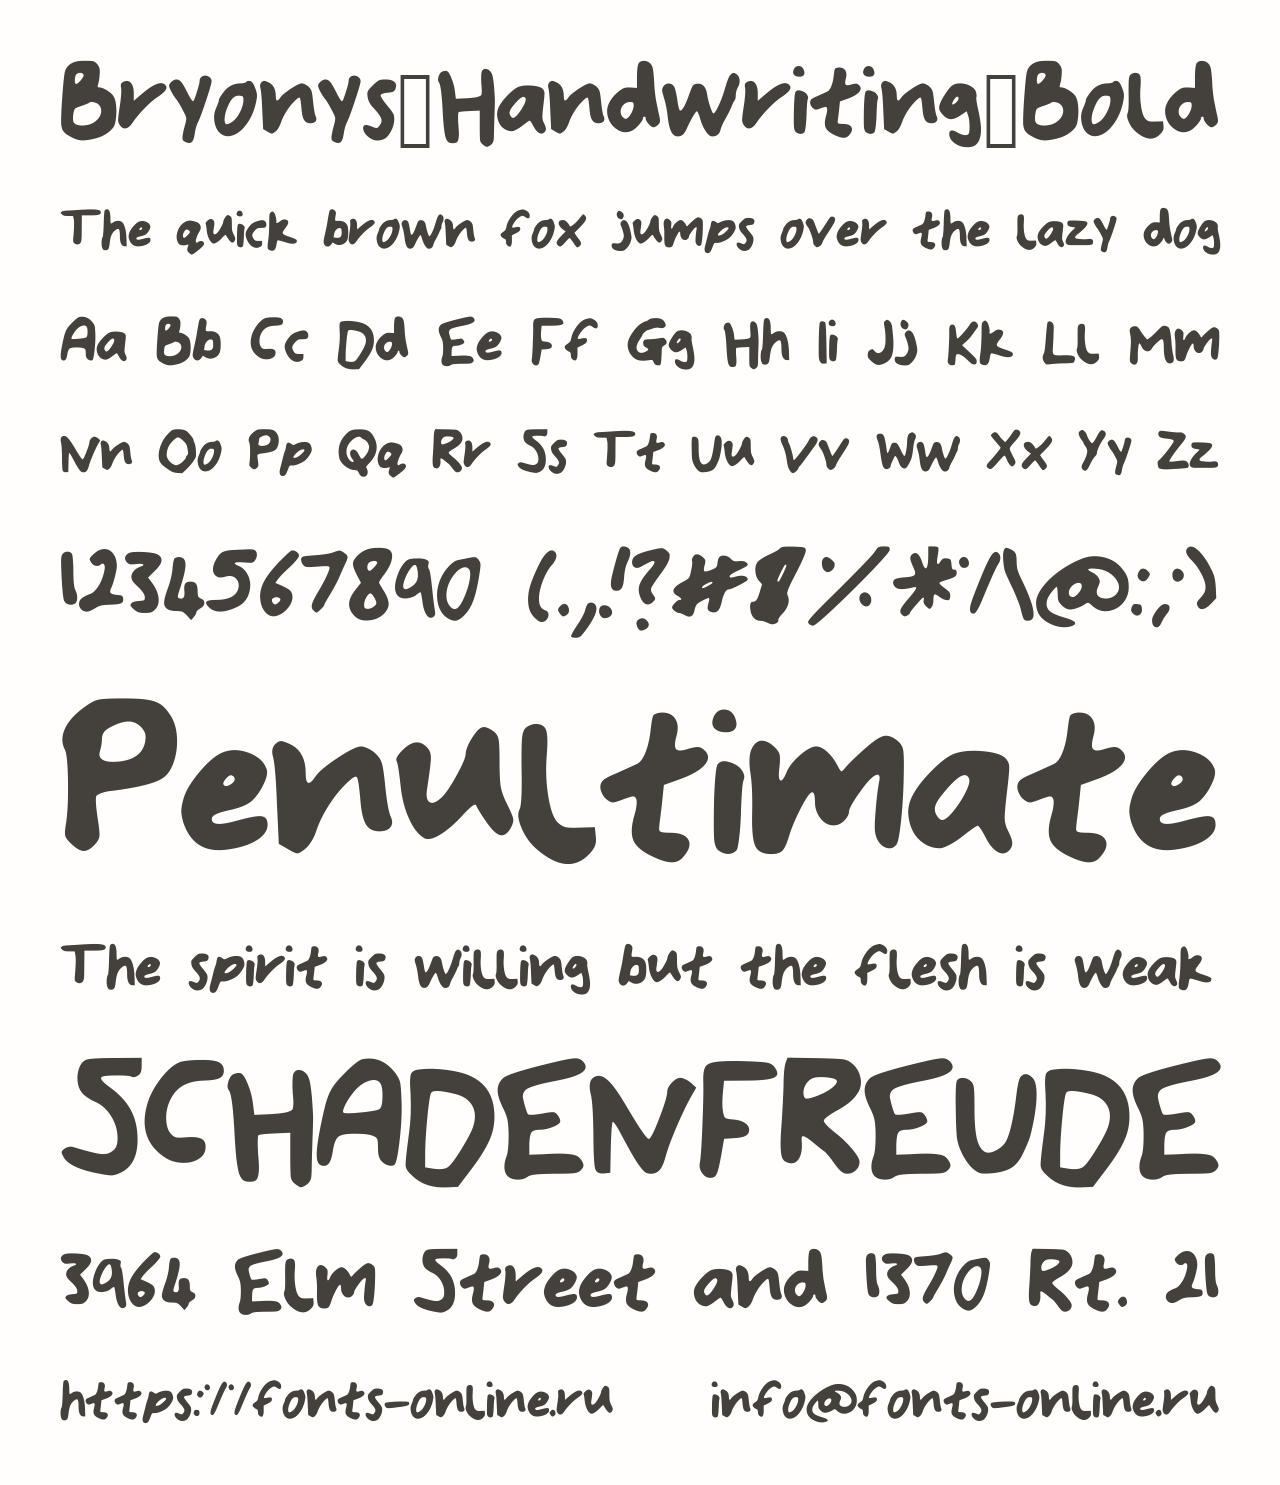 Bryonys▯Handwriting▯Bold
The quick brown fox jumps over the lazy dog
Aa Bb Cc Dd Ee Ff Gg Hh Ii Jj Kk Ll Mm
Nn Oo Pp Qq Rr Ss Tt Uu Vv Ww Xx Yy Zz
1234567890 (.,.!?#$%*/\@:;)
Penultimate
The spirit is willing but the flesh is weak
SCHADENFREUDE
3964 Elm Street and 1370 Rt. 21
https://fonts-online.ru info@fonts-online.ru